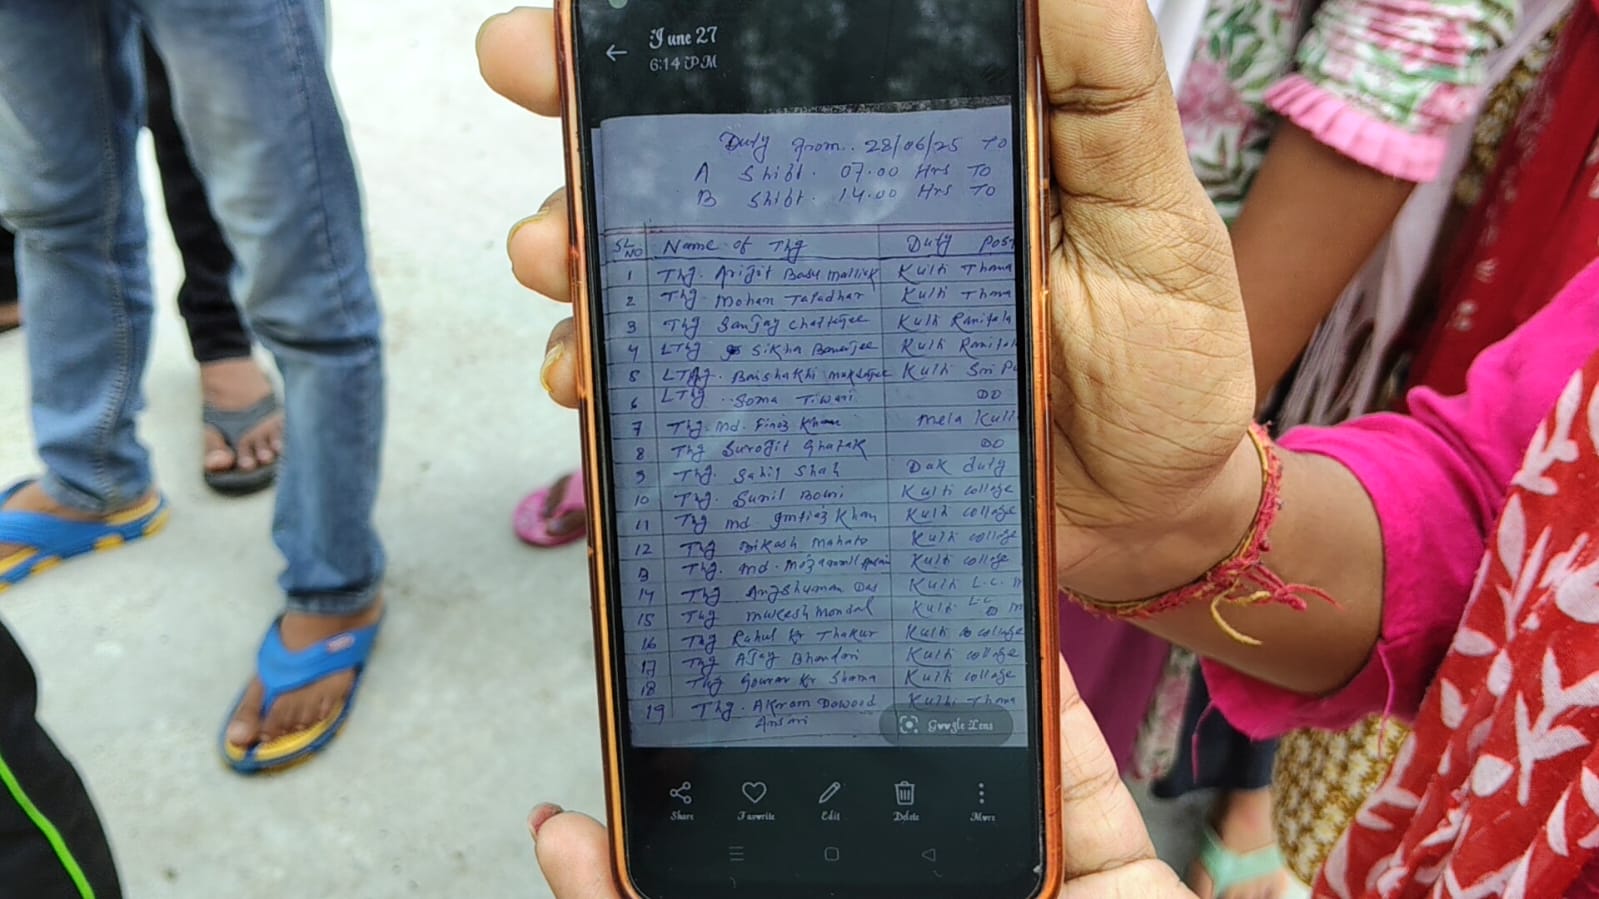 June 27
6:14 PM
Duty from.. 28/06/25 To
A Shift. 07.00 Hrs To
B Shift. 14.00 Hrs To
SL NO Name of Thg Duty Post
1 Thg. Arijit Basu Mallick Kulti Thana
2 Thg. Mohan Kulti Thana
3 Thg Sanjay Chatterjee Kulti Ranitala
4 LThg Sikha Banerjee Kulti
5 LThg. Baishakhi Mukherjee Kulti Sri
6 LThg. Soma Tiwari DO
7 Thg. Md. Firoz Khan Mela
8 Thg Surojit Ghatak DO
9 Thg. Sahil Shah Dak duty
10 Thg. Sunil Kulti college
11 Thg Md Imtiaz Khan Kulti college
12 Thg Bikash Mahato Kulti college
13 Thg. Md. Kulti college
14 Thg Angshuman Das Kulti L.C.
15 Thg Mukesh Mondal Kulti L.C.
16 Thg Rahul Kr Thakur Kulti college
17 Thg Ajay Bhandari Kulti college
18 Thg Gourav Kr Sharma Kulti college
19 Thg. Akram Dawood Kulti Thana
Ansari
Google Lens
Share Favorite Edit Delete More